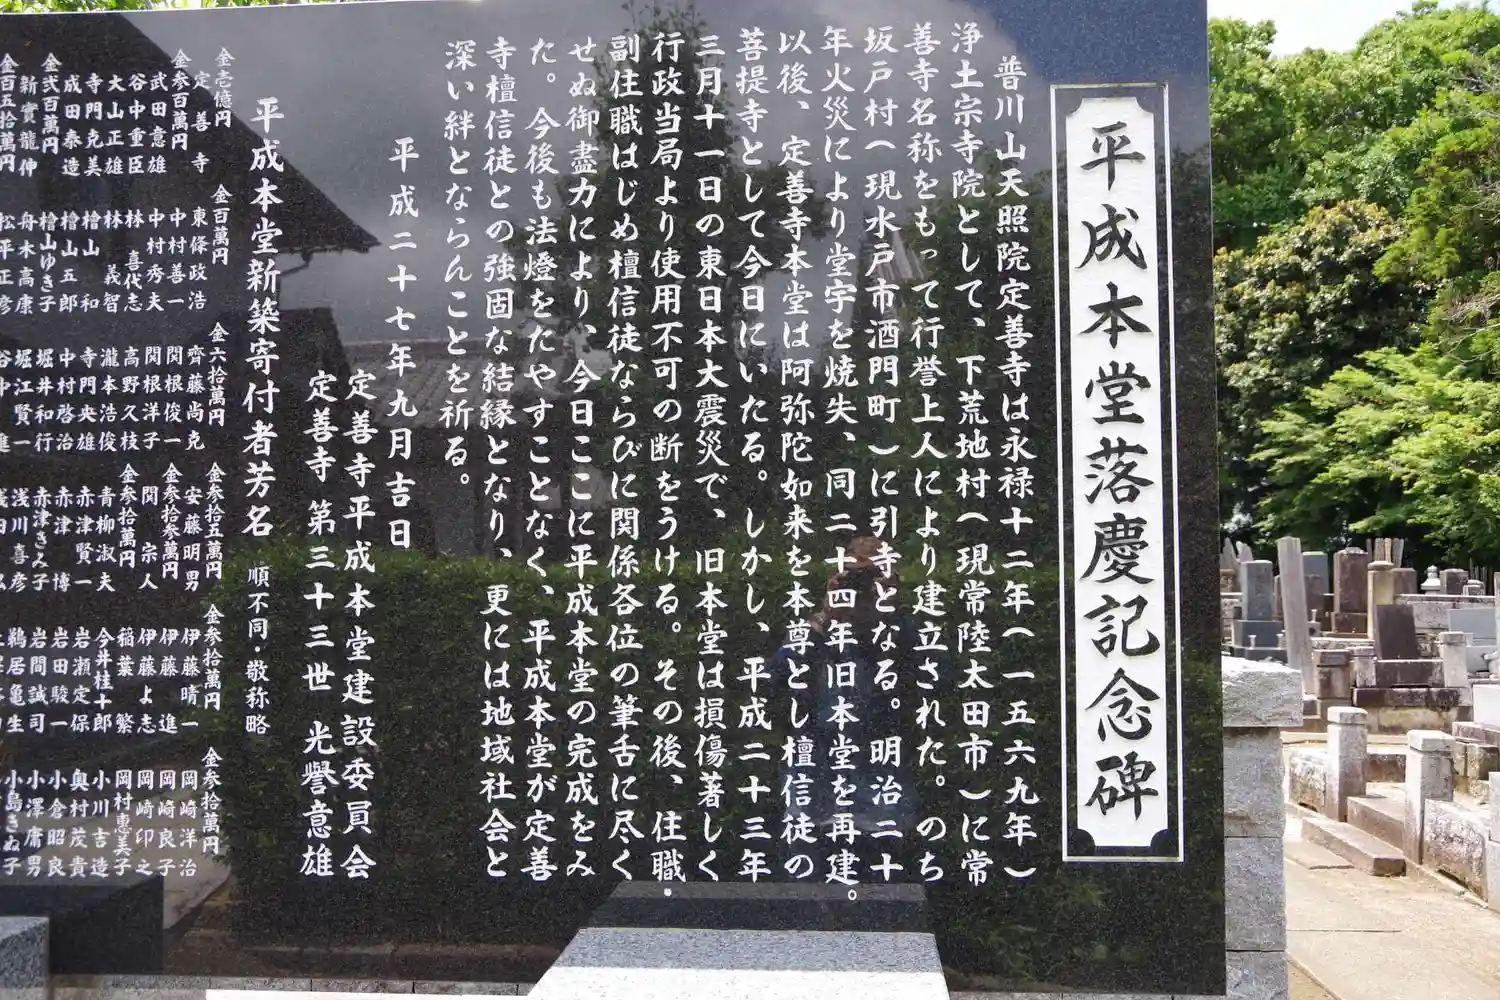 平成本堂落慶記念碑
普川山天照院定善寺は永禄十二年(一五六九年)
浄土宗寺院として、下荒地村(現常陸太田市)に常
善寺名称をもって行誉上人により建立された。のち
坂戸村(現水戸市酒門町)に引寺となる。明治二十
年火災により堂宇を焼失、同二十四年旧本堂を再建。
以後、定善寺本堂は阿弥陀如来を本尊とし檀信徒の
菩提寺として今日にいたる。しかし、平成二十三年
三月十一日の東日本大震災で、旧本堂は損傷著しく
行政当局より使用不可の断をうける。その後、住職・
副住職はじめ檀信徒ならびに関係各位の筆舌に尽く
せぬ御盡力により、今日ここに平成本堂の完成をみ
た。今後も法燈をたやすことなく、平成本堂が定善
寺檀信徒との強固な結縁となり、更には地域社会と
深い絆とならんことを祈る。
平成二十七年九月吉日
定善寺平成本堂建設委員会
定善寺 第三十三世 光譽意雄
平成本堂新築寄付者芳名 順不同・敬称略
金壱億円
定善寺
金参百萬円
武田意雄
谷中重臣
大山正雄
寺門克美
成田泰造
金弐百萬円
新實龍伸
金百五拾萬円
金百萬円
東條政浩
中村善一
中村秀夫
林 喜代志
林 義智
檜山 和
檜山五郎
檜山ゆき子
舟木高康
松平正彦
金六拾萬円
齊藤尚克
関根俊一
関根洋子
高野久枝
瀧本浩俊
寺門央雄
中村啓治
堀井和行
堀江賢一
谷中 進
金参拾五萬円
安藤明男
金参拾参萬円
関 宗人
金参拾萬円
青柳淑夫
赤津賢一
赤津 博
赤津きみ子
浅川喜彦
金参拾萬円
伊藤晴一
伊藤 進
伊藤よ志
稲葉 繁
今井桂十郎
岩瀬定保
岩田駿一
岩間誠司
鵜居亀生
金参拾萬円
岡﨑洋治
岡﨑良子
岡﨑印之
岡村惠美子
小川吉造
奥村茂貴
小倉昭良
小澤庸男
小島きぬ子